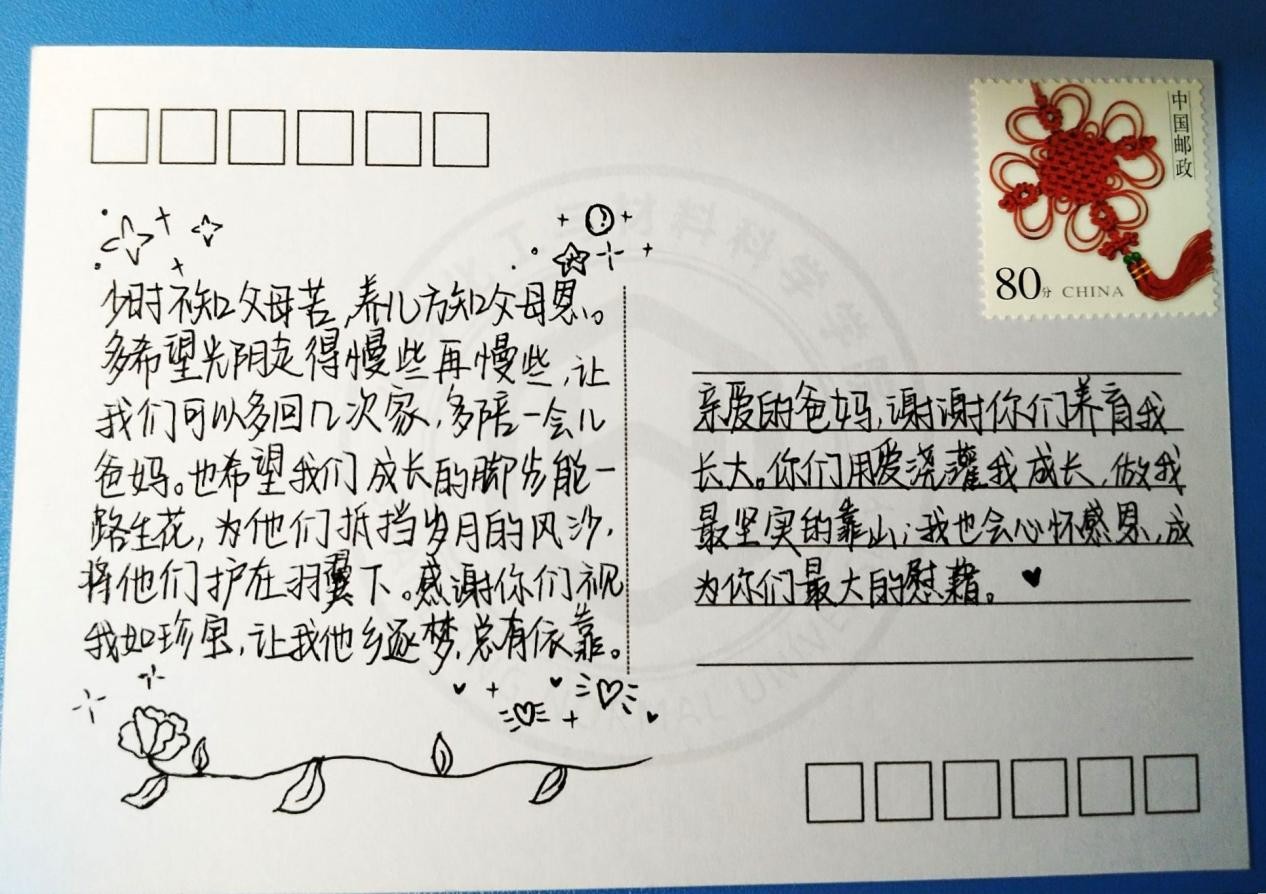 少时不知父母苦,养儿方知父母恩。
多希望光阴走得慢些再慢些,让
我们可以多回几次家,多陪一会儿
爸妈。也希望我们成长的脚步能一
路生花,为他们抵挡岁月的风沙,
将他们护在羽翼下。感谢你们视
我如珍宝,让我他乡逐梦,总有依靠。
中国邮政
80分 CHINA
亲爱的爸妈,谢谢你们养育我
长大。你们用爱浇灌我成长,做我
最坚实的靠山;我也会心怀感恩,成
为你们最大的慰藉。
化工与材料科学学院
NORMAL UNIVE